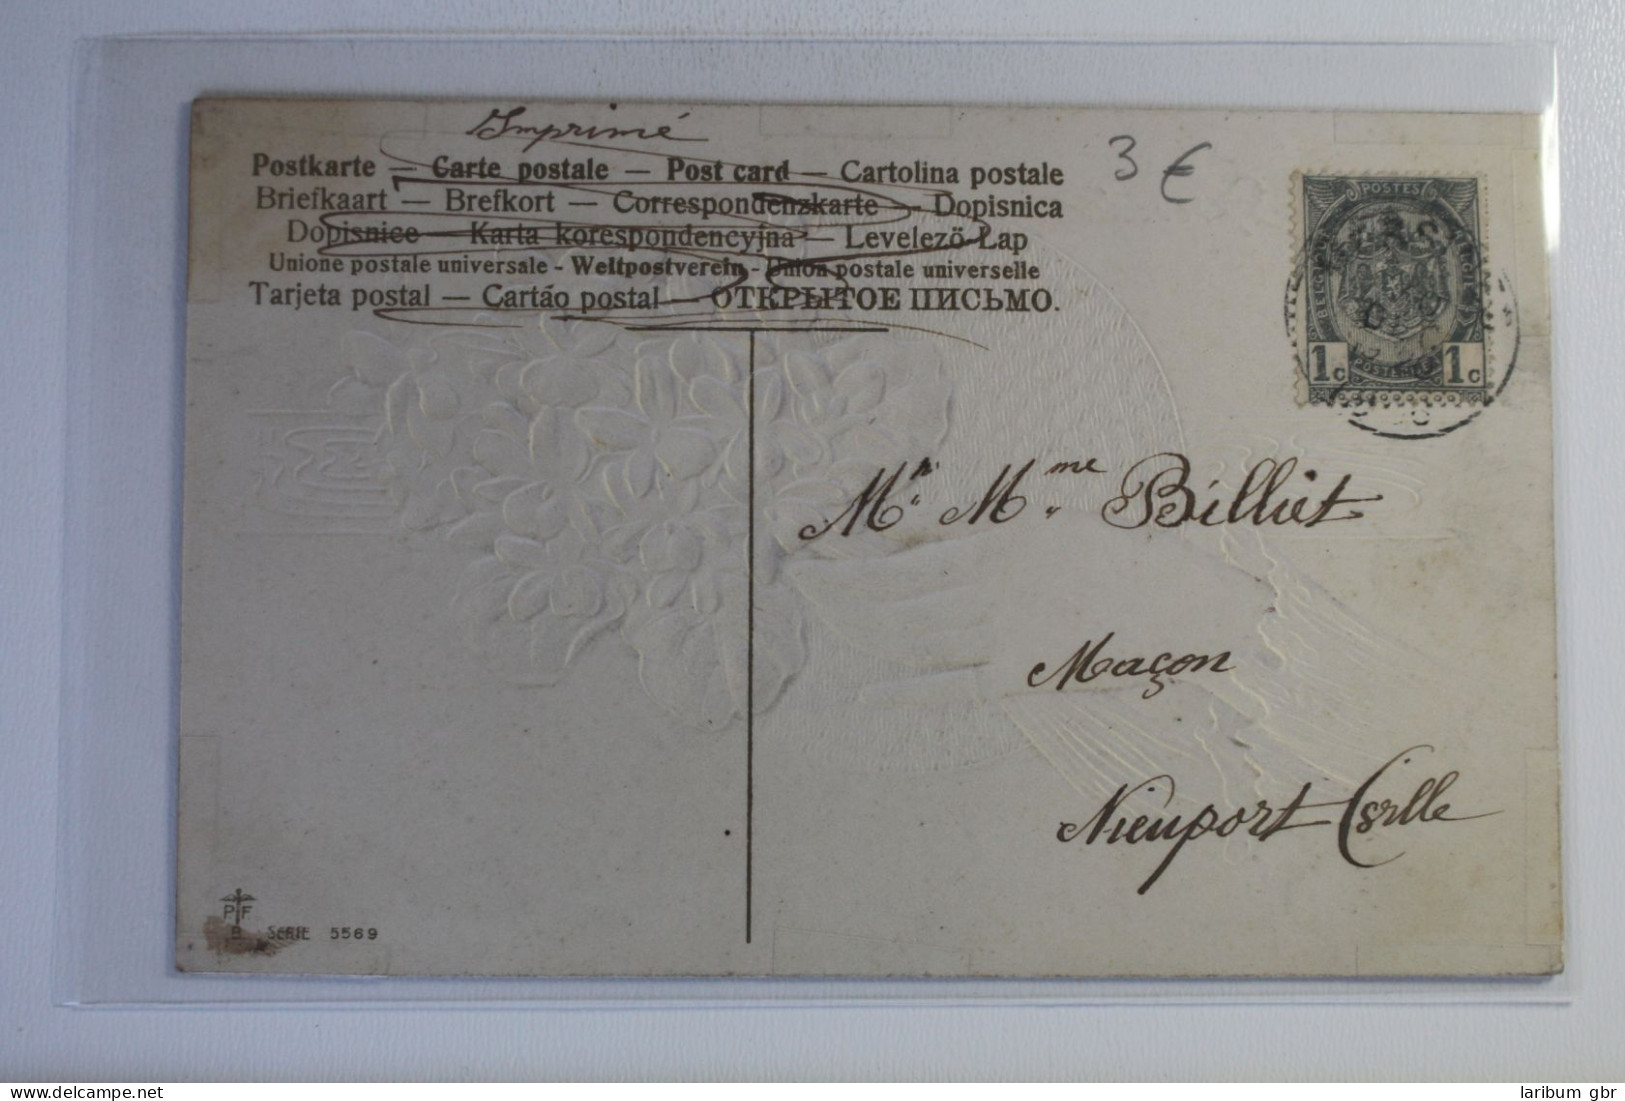 Imprimé
Postkarte — Carte postale — Post card — Cartolina postale
Briefkaart — Brefkort — Correspondenzkarte — Dopisnica
Dopisnice — Karta korespondencyjna — Levelező-Lap
Unione postale universale - Weltpostverein - Union postale universelle
Tarjeta postal — Cartáo postal — ОТКРЫТОЕ ПИСЬМО.
3 €
POSTES
1c 1c
Mr. Mme. Billiet
Maçon
Nieuport
P. F.
B. SERIE 5569
laribum gbr